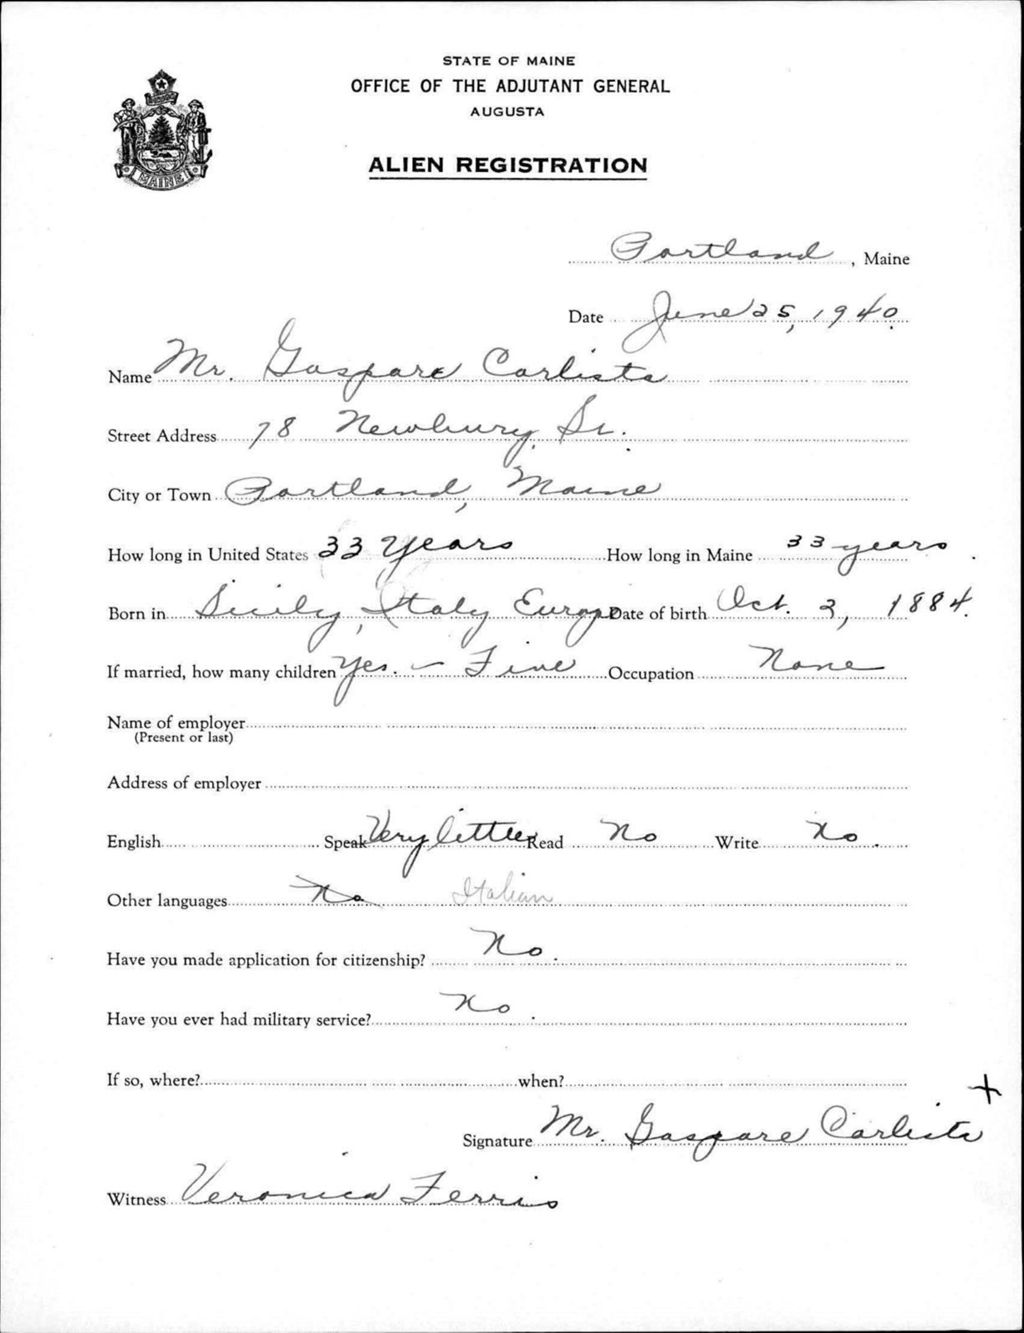 STATE OF MAINE
OFFICE OF THE ADJUTANT GENERAL
AUGUSTA
ALIEN REGISTRATION
MAINE
Portland, Maine
Date June 25, 1940
Name Mr. Gaspare Carlista
Street Address 78 Newbury St.
City or Town Portland, Maine
How long in United States 33 Years How long in Maine 33 years.
Born in Sicily, Italy Europe Date of birth Oct. 2, 1884.
If married, how many children Yes. - Five Occupation None
Name of employer
(Present or last)
Address of employer
English Speak Very little Read No Write No.
Other languages No Italian
Have you made application for citizenship? No.
Have you ever had military service? No.
If so, where? when?
Signature Mr. Gaspare Carlista X
Witness Veronica Ferris